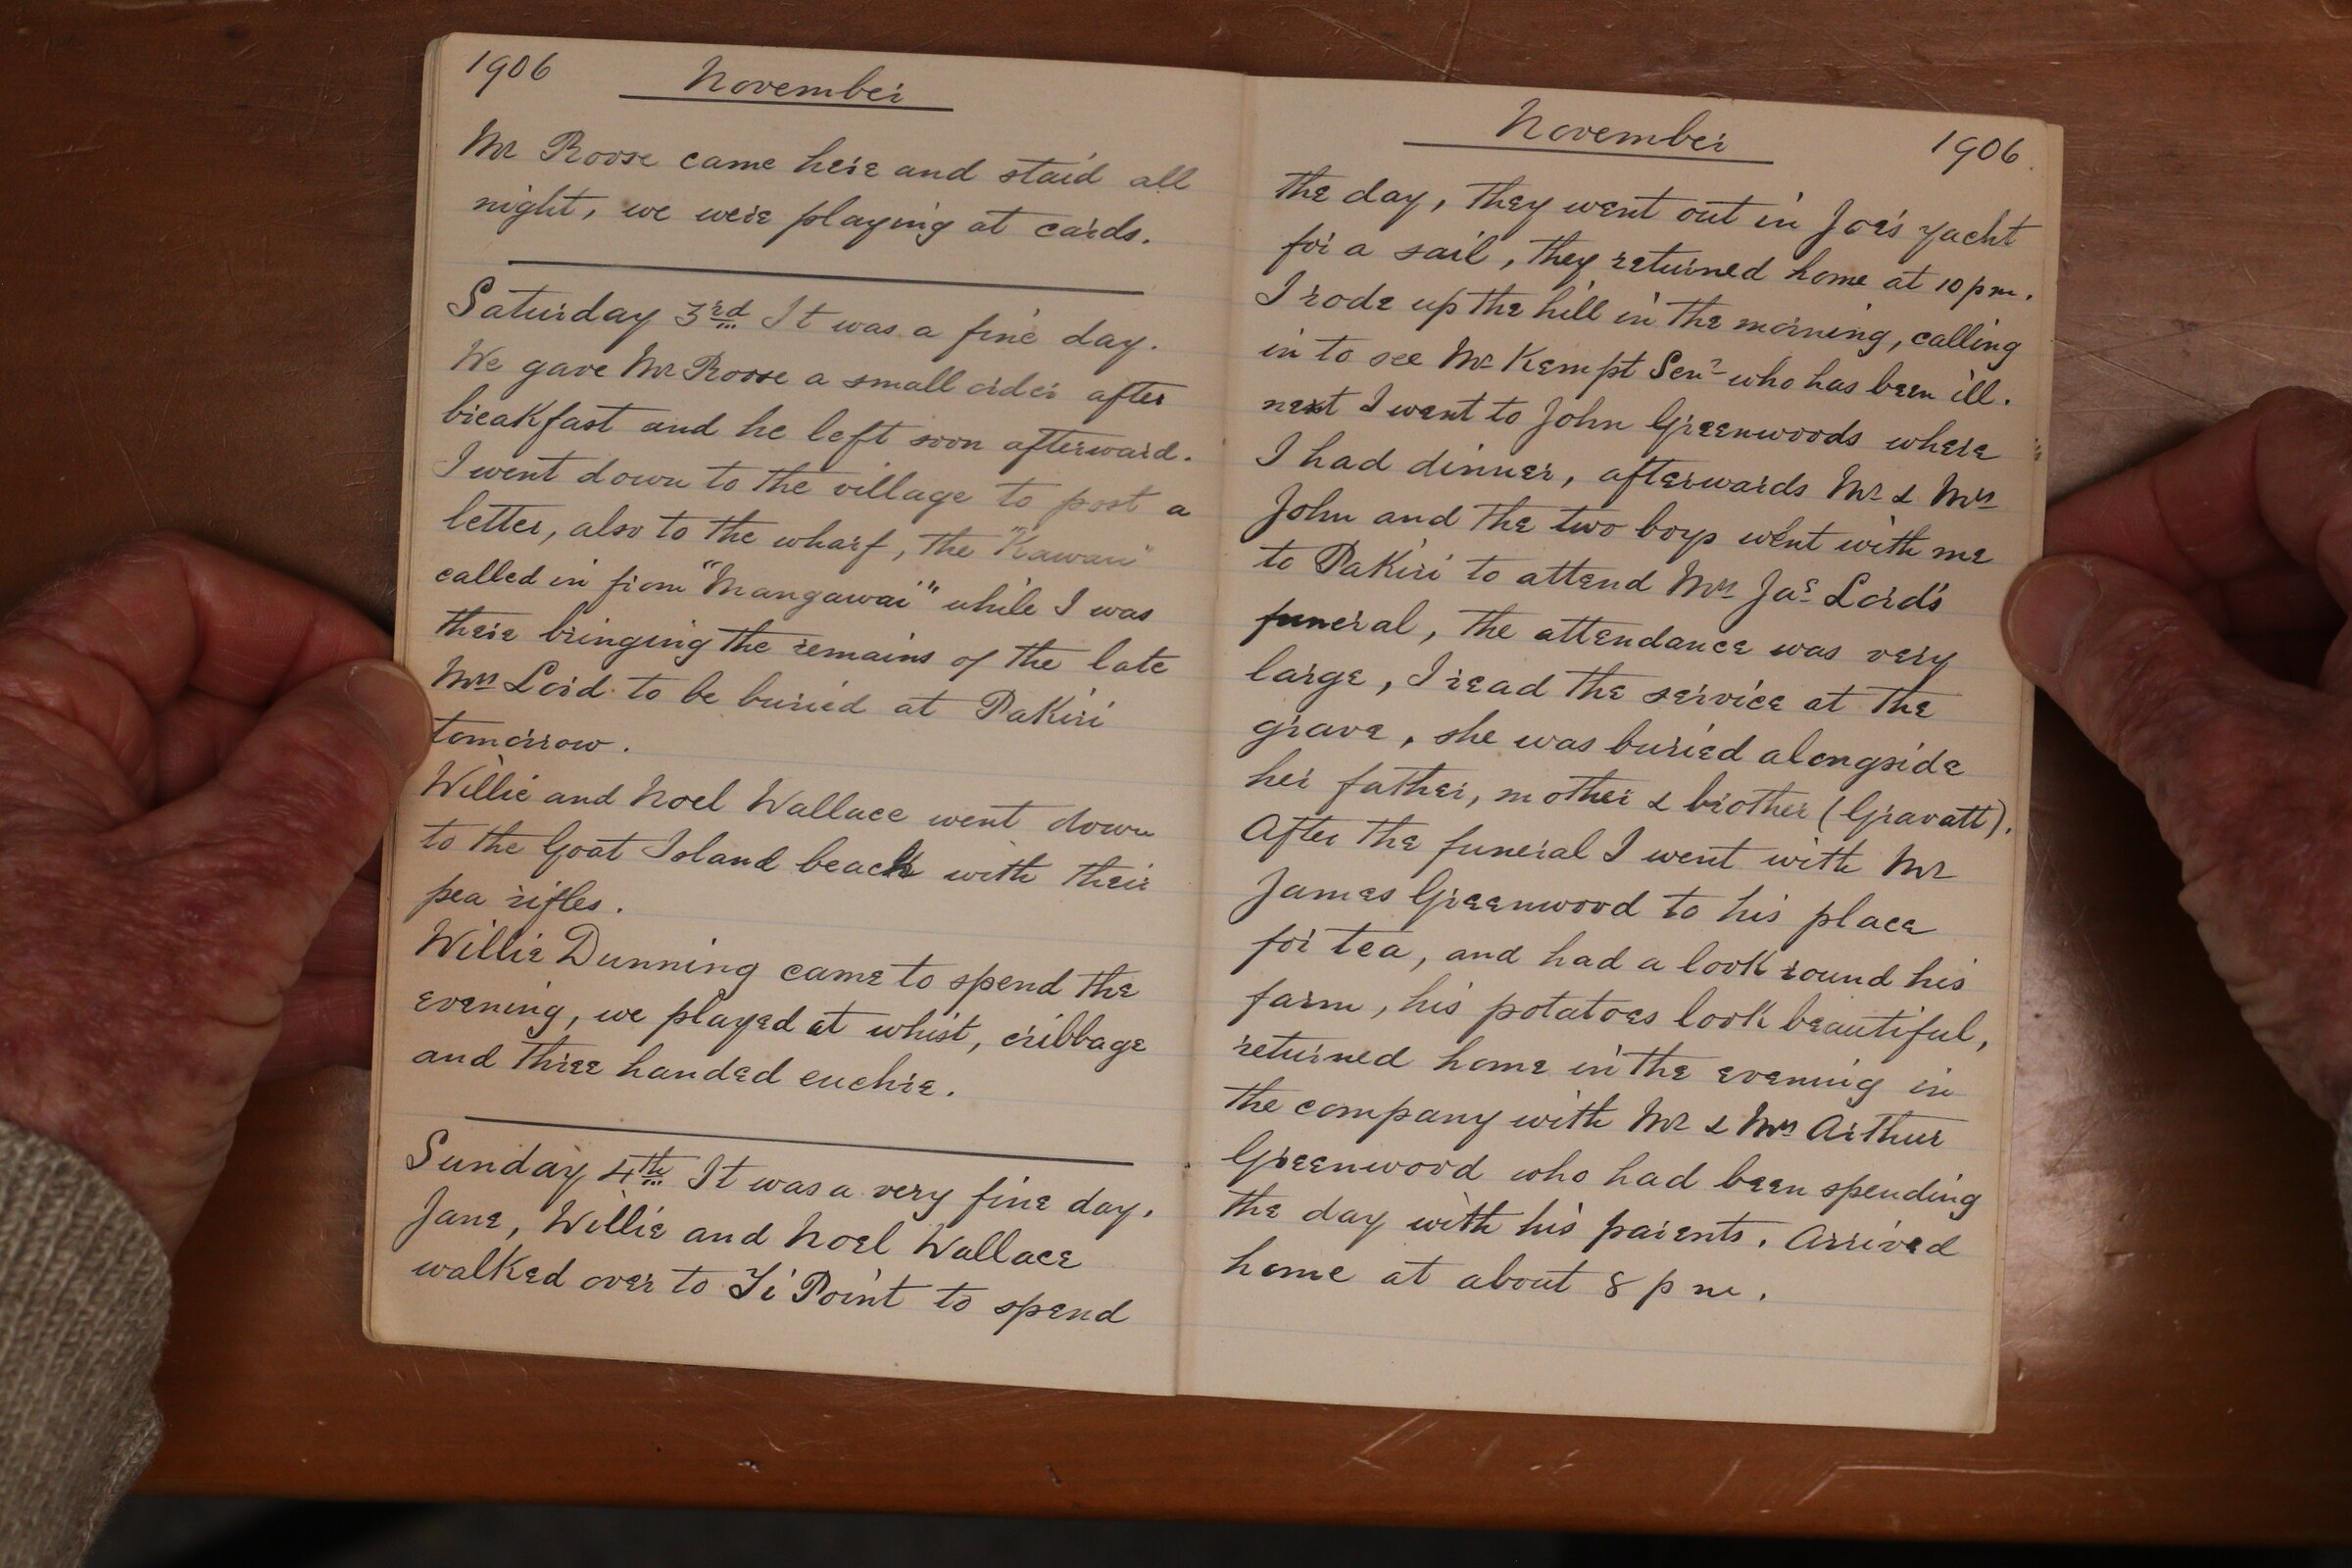 1906
November
Mr Roose came here and staid all
night, we were playing at cards.
Saturday 3rd It was a fine day.
We gave Mr Roose a small order after
breakfast and he left soon afterward.
I went down to the village to post a
letter, also to the wharf, the "Kawau"
called in from "Mangawai" while I was
there bringing the remains of the late
Mrs Lord to be buried at Pakiri
tomorrow.
Willie and Noel Wallace went down
to the Goat Island beach with their
pea rifles.
Willie Dunning came to spend the
evening, we played at whist, cribbage
and three handed euchre.
Sunday 4th It was a very fine day.
Jane, Willie and Noel Wallace
walked over to Ti Point to spend
November
1906.
the day, they went out in Joe's yacht
for a sail, they returned home at 10 pm.
I rode up the hill in the morning, calling
in to see Mr Kempt Senr who has been ill.
next I went to John Greenwoods where
I had dinner, afterwards Mr & Mrs
John and the two boys went with me
to Pakiri to attend Mrs Jas Lord's
funeral, the attendance was very
large, I read the service at the
grave, she was buried alongside
her father, mother & brother (Gravatt).
After the funeral I went with Mr
James Greenwood to his place
for tea, and had a look round his
farm, his potatoes look beautiful,
returned home in the evening in
the company with Mr & Mrs Arthur
Greenwood who had been spending
the day with his parents. Arrived
home at about 8 pm.